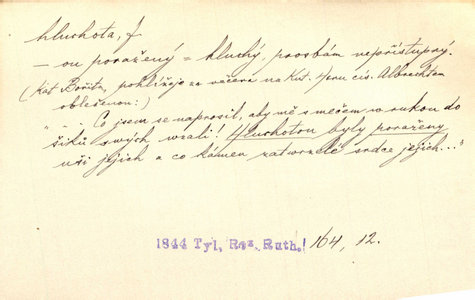 hluchota, f
— ou poražený = hluchý, prosbám nepřístupný.
(Kat Bořita, pohlížeje za večera na Kut. Horu cis. Albrechtem
obleženou:)
" - - Co jsem se naprosil, aby mě s mečem w rukou do
šiků swých wzali! Hluchotou byly poraženy
uši jejich a co kámen zatwrzelé srdce jejich..."
1844 Tyl, Roz. Ruth. 164, 12.